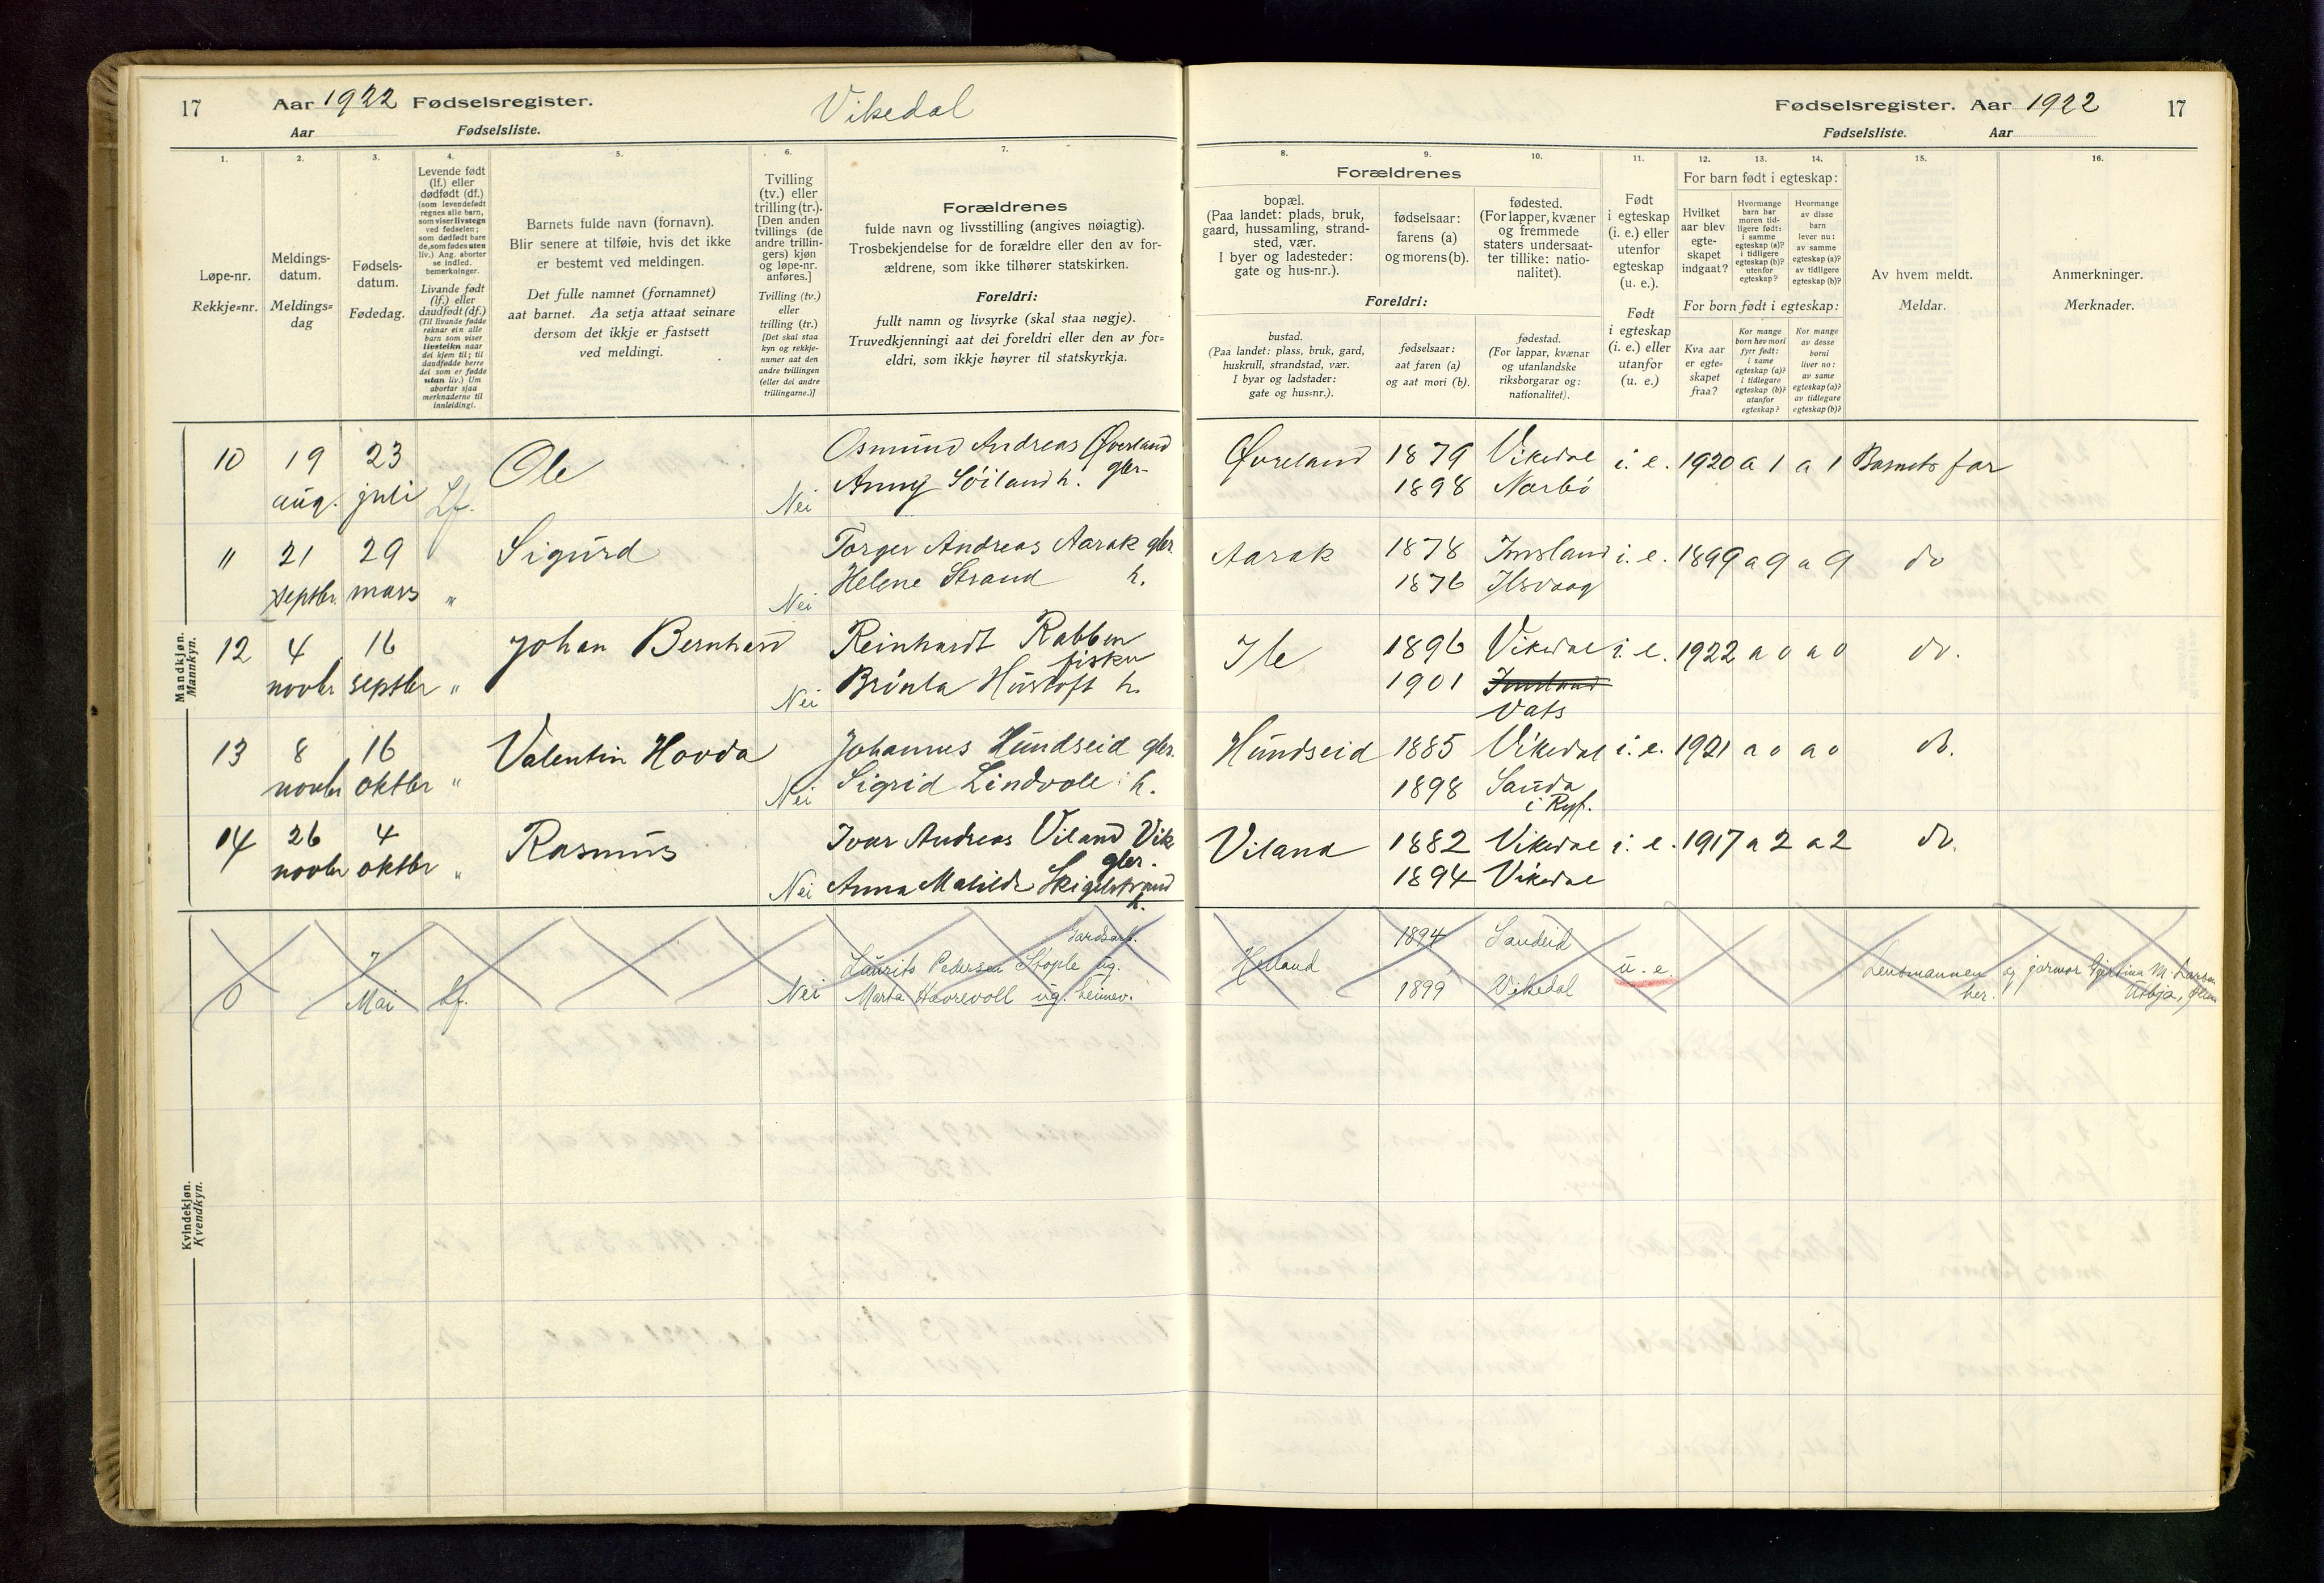 17
Aar 1922 Fødselsregister.
Aar
Fødselsliste.
Vikedal
1.
Løpe-nr.
Rekkje=nr.
2.
Meldings-
datum.
Meldings=
dag
3.
Fødsels-
datum.
Fødedag.
4.
Levende født
(lf.) eller
dødfødt (df.)
(som levendefødt
regnes alle barn,
som viser livstegn
ved fødselen;
som dødfødt bare
de, som fødes uten
liv.) Ang. aborter
se indled.
bemerkninger.
Livande født
(lf.) eller
daudfødt (df.)
(Til livande fødde
reknar ein alle
barn som viser
livsteikn naar
dei kjem til; til
daudfødde berre
dei som er fødde
utan liv.) Um
abortar sjaa
merknaderne til
innleidingi.
5.
Barnets fulde navn (fornavn).
Blir senere at tilføie, hvis det ikke
er bestemt ved meldingen.
Det fulle namnet (fornamnet)
aat barnet. Aa setja attaat seinare
dersom det ikkje er fastsett
ved meldingi.
6.
Tvilling
(tv.) eller
trilling (tr.).
[Den anden
tvillings (de
andre trillin-
gers) kjøn
og løpe-nr.
anføres.]
Tvilling (tv.)
eller
trilling (tr.)
[Det skal staa
kyn og rekkje-
numer aat den
andre tvillingen
(eller dei andre
trillingarne.)]
7.
Forældrenes
fulde navn og livsstilling (angives nøiagtig).
Trosbekjendelse for de forældre eller den av for-
ældrene, som ikke tilhører statskirken.
Foreldri:
fullt namn og livsyrke (skal staa nøgje).
Truvedkjenningi aat dei foreldri eller den av for=
eldri, som ikkje høyrer til statskyrkja.
Mandkjøn.
Mannkyn.
10
19
aug.
23
juli
Lf.
Ole
Nei
Osmund Andreas Øverland
gbr.
Anny Søiland h.
"
21
septbr.
29
mars
"
Sigurd
Nei
Torger Andreas Aarak gbr.
Helene Strand h.
12
4
novbr
16
septbr
"
Johan Bernhard
Nei
Reinhardt Rabben
fisker
Brúnla Hustoft h.
13
8
novbr
16
oktbr
"
Valentin Hovda
Nei
Johannes Hundseid gbr.
Sigrid Lindvoll h.
14
26
novbr
4
oktbr
"
Rasmus
Nei
Ivar Andreas Viland Vik
gbr.
Anna Mathilde
h.
Kvindekjøn.
Kvendkyn.
0
7
Mai
Lf.
Nei
Jordarb.
Laurits Pedersen Støple ug.
Marta Haarevoll ug. heimev.
Fødselsregister. Aar 1922
17
Fødselsliste.
Aar
8.
Forældrenes
bopæl.
(Paa landet: plads, bruk,
gaard, hussamling, strand-
sted, vær.
I byer og ladesteder:
gate og hus-nr.).
Foreldri:
bustad.
(Paa landet: plass, bruk, gard,
huskrull, strandstad, vær.
I byar og ladstader:
gate og hus=nr.).
9.
fødselsaar:
farens (a)
og morens (b).
fødselsaar:
aat faren (a)
og aat mori (b).
10.
fødested.
(For lapper, kvæner
og fremmede
staters undersaat-
ter tillike: natio-
nalitet).
fødestad.
(For lappar, kvænar
og utanlandske
riksborgarar og:
nationalitet).
11.
Født
i egteskap
(i. e.) eller
utenfor
egteskap
(u. e.).
Født
i egteskap
(i. e.) eller
utanfor
(u. e.)
12.
13.
14.
For barn født i egteskap:
Hvilket
aar blev
egte-
skapet
indgaat?
Hvormange
barn har
moren tid-
ligere født:
i samme
egteskap (a)?
i tidligere
egteskap (b)?
utenfor
egteskap?
Hvormange
av disse
barn
lever nu:
av samme
egteskap (a)?
av tidligere
egteskap (b)?
For born født i egteskap:
Kva aar
er egte=
skapet
fraa?
Kor mange
born hev mori
fyrr født:
i same
egteskap (a)?
i tidlegare
egteskap (b)?
utanfor
egteskap?
Kor mange
av desse
borni
liver no:
av same
egteskap (a)?
av tidlegare
egteskap (b)?
15.
Av hvem meldt.
Meldar.
16.
Anmerkninger.
Merknader.
Øvreland
1879
1898
Vikedal
Nærbø
i. e.
1920
a 1
a 1
Barnets far
Aarak
1878
1876
Imsland
Ilsvaag
i. e.
1899
a 9
a 9
do
Ile
1896
1901
Vikedal
Imsland
Vats
i. e.
1922
a 0
a 0
do.
Hundseid
1885
1898
Vikedal
Sauda
i Ryf.
i. e.
1921
a 0
a 0
do.
Viland
1882
1894
Vikedal
Vikedal
i. e.
1917
a 2
a 2
do.
1894
1899
Sandeid
Vikedal
u. e.
Lensmannen
her.
og jormor Gjertina M. Larsen
Utbjø,